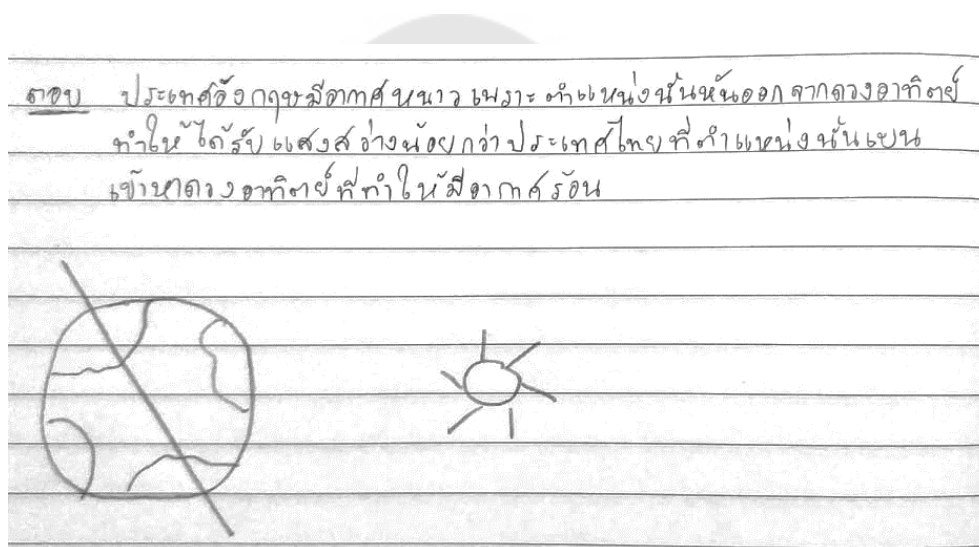 ตอบ ประเทศอังกฤษมีอากาศหนาวเพราะตำแหน่งนั้นหันออกจากดวงอาทิตย์
ทำให้ได้รับแสงสว่างน้อยกว่าประเทศไทยที่ตำแหน่งนั้นเอน
เข้าหาดวงอาทิตย์ที่ทำให้มีอากาศร้อน